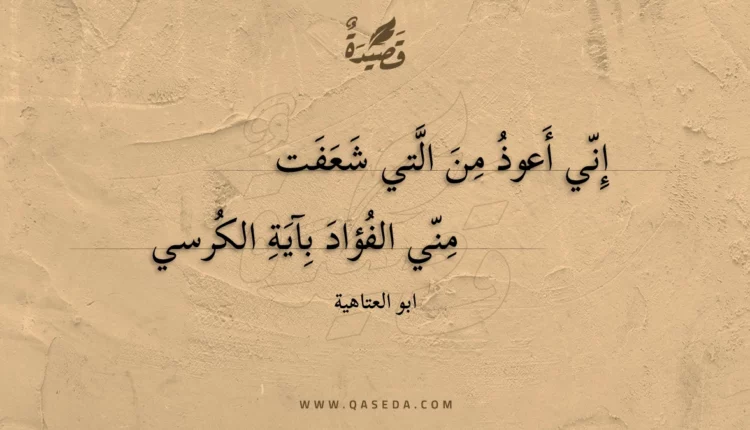 قَصِيدَةٌ
إِنّي أَعوذُ مِنَ الَّتي شَعَفَت
مِنّي الفُؤادَ بِآيَةِ الكُرسي
ابو العتاهية
WWW.QASEDA.COM